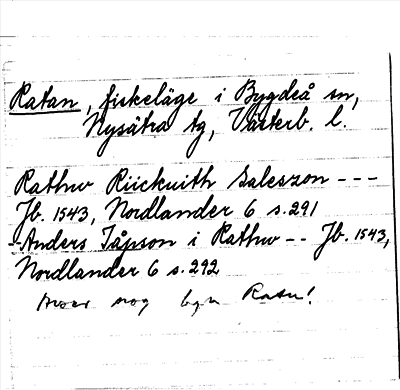 Ratan, fiskeläge i Bygdeå sn,
Nysätra tg, Västerb. l.
Rathw Riickuith Saleszon ---
Jb. 1543, Nordlander 6 s. 291
-Anders Jåpson i Rathw -- Jb. 1543,
Nordlander 6 s. 292
Avser nog byn Ratu!